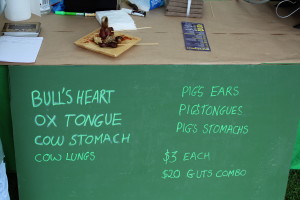 BULL'S HEART
OX TONGUE
COW STOMACH
COW LUNGS
PIGS EARS
PIGSTONGUES
PIG'S STOMACHS
$3 EACH
$20 GUTS COMBO